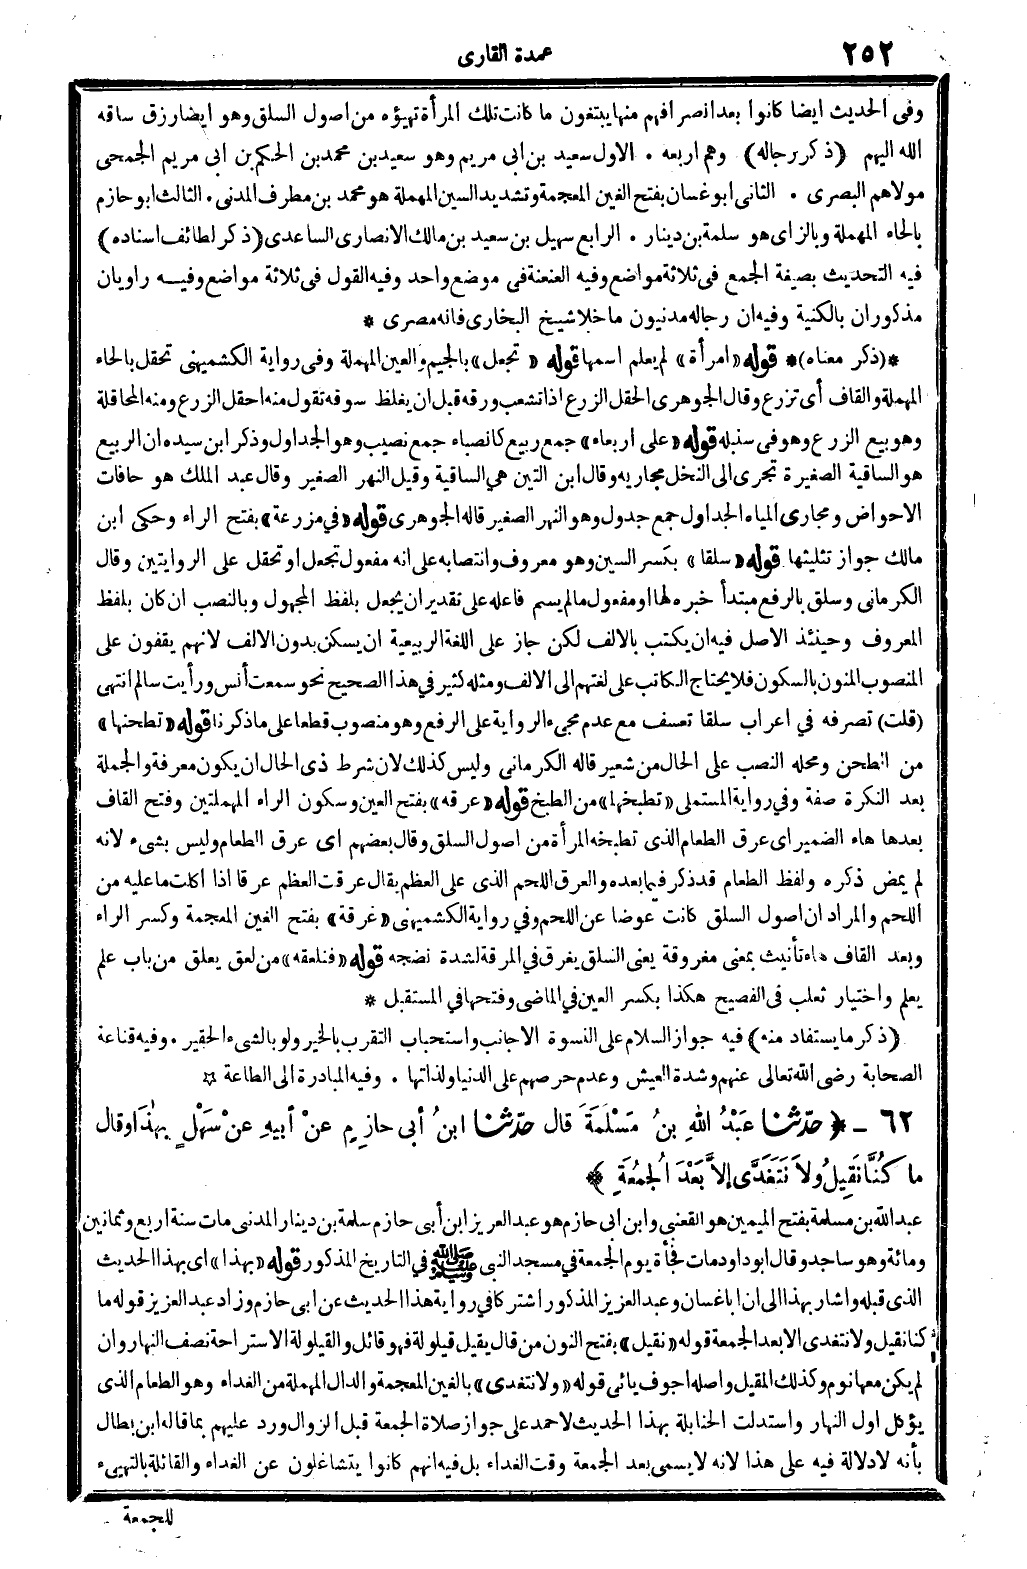 ٢٥٢
عمدة القارى
وفى الحديث ايضا كانوا بعد انصرافهم منها يبتغون ما كانت تلك المرأة تهيؤه من اصول السلق وهو ايضا رزق ساقه
الله اليهم (ذكر رجاله) وهم اربعه . الاول سعيد بن ابى مريم وهو سعيد بن محمد بن الحكم بن ابى مريم الجمحى
مولاهم البصرى . الثانى ابو غسان بفتح الغين المعجمة وتشديد السين المهملة هو محمد بن مطرف المدنى . الثالث ابو حازم
بالحاء المهملة وبالزاى هو سلمة بن دينار . الرابع سهيل بن سعيد بن مالك الانصارى الساعدى (ذكر لطائف اسناده)
فيه التحديث بصيغة الجمع فى ثلاثة مواضع وفيه العنعنة فى موضع واحد وفيه القول فى ثلاثة مواضع وفيه راويان
مذكوران بالكنية وفيه ان رجاله مدنيون ما خلا شيخ البخارى فانه مصرى *
*(ذكر معناه)* قوله «امرأة» لم يعلم اسمها قوله «تجعل» بالجيم والعين المهملة وفى رواية الكشميهنى تحقل بالحاء
المهملة والقاف أى تزرع وقال الجوهرى الحقل الزرع اذا تشعب ورقه قبل ان يغلظ سوقه تقول منه احقل الزرع ومنه المحاقلة
وهو بيع الزرع وهو فى سنبله قوله «على اربعاء» جمع ربيع كانصباء جمع نصيب وهو الجداول وذكر ابن سيده ان الربيع
هو الساقية الصغيرة تجرى الى النخل مجاريه وقال ابن التين هي الساقية وقيل النهر الصغير وقال عبد الملك هو حافات
الاحواض ومجارى المياه الجداول جمع جدول وهو النهر الصغير قاله الجوهرى قوله «في مزرعة» بفتح الراء وحكى ابن
مالك جواز تثليثها قوله «سلقا» بكسر السين وهو معروف وانتصابه على انه مفعول تجعل او تحقل على الروايتين وقال
الكرمانى وسلق بالرفع مبتدأ خبره لها او مفعول مالم يسم فاعله على تقدير ان يجعل بلفظ المجهول وبالنصب ان كان بلفظ
المعروف وحينئذ الاصل فيه ان يكتب بالالف لكن جاز على اللغة الربيعية ان يسكن بدون الالف لانهم يقفون على
المنصوب المنون بالسكون فلا يحتاج الكاتب على لغتهم الى الالف ومثله كثير في هذا الصحيح نحو سمعت أنس ورأيت سالم انتهى
(قلت) تصرفه في اعراب سلقا تعسف مع عدم مجىء الرواية على الرفع وهو منصوب قطعا على ما ذكرنا قوله «تطحنها»
من الطحن ومحله النصب على الحال من شعير قاله الكرمانى وليس كذلك لان شرط ذى الحال ان يكون معرفة والجملة
بعد النكرة صفة وفي رواية المستملى «تطبخها» من الطبخ قوله «عرقه» بفتح العين وسكون الراء المهملتين وفتح القاف
بعدها هاء الضمير اى عرق الطعام الذى تطبخه المرأة من اصول السلق وقال بعضهم اى عرق الطعام وليس بشىء لانه
لم يمض ذكره ولفظ الطعام قد ذكر فيما بعده والعرق اللحم الذى على العظم يقال عرقت العظم عرقا اذا اكلت ما عليه من
اللحم والمراد ان اصول السلق كانت عوضا عن اللحم وفي رواية الكشميهنى «غرقة» بفتح الغين المعجمة وكسر الراء
وبعد القاف هاء تأنيث بمعنى مغروقة يعنى السلق يغرق في المرقة لشدة نضجه قوله «فنلعقه» من لعق يعلق من باب علم
يعلم واختيار ثعلب فى الفصيح هكذا بكسر العين في الماضى وفتحها في المستقبل *
(ذكر ما يستفاد منه) فيه جواز السلام على النسوة الاجانب واستحباب التقرب بالخير ولو بالشىء الحقير . وفيه قناعة
الصحابة رضى الله تعالى عنهم وشدة العيش وعدم حرصهم على الدنيا ولذاتها . وفيه المبادرة الى الطاعة ☆
٦٢ ـ ﴿ حدّثنا عَبْدُ اللهِ بنُ مَسْلَمَةَ قال حدّثنا ابنُ أبى حازِمٍ عنْ أبيهِ عنْ سَهْلٍ بِهٰذَا وقال
ما كُنَّا نَقِيلُ ولاَ نَتَغَدَّى إلاَّ بَعْدَ الجُمُعَةِ ﴾
عبد الله بن مسلمة بفتح الميمين هو القعنبي وابن ابى حازم هو عبد العزيز ابن أبى حازم سلمة بن دينار المدنى مات سنة اربع وثمانين
ومائة وهو ساجد وقال ابو داود مات فجأة يوم الجمعة في مسجد النبى ﷺ في التاريخ المذكور قوله «بهذا» اى بهذا الحديث
الذى قبله واشار بهذا الى ان اباغسان وعبد العزيز المذكور اشتركا في رواية هذا الحديث عن ابى حازم وزاد عبد العزيز قوله ما
كنا نقيل ولا نتغدى الا بعد الجمعة قوله «نقيل» بفتح النون من قال يقيل قيلولة فهو قائل والقيلولة الاستراحة نصف النهار وان
لم يكن معها نوم وكذلك المقيل واصله اجوف يائى قوله «ولا نتغدى» بالغين المعجمة والدال المهملة من الغداء وهو الطعام الذى
يؤكل اول النهار واستدلت الحنابلة بهذا الحديث لاحمد على جواز صلاة الجمعة قبل الزوال ورد عليهم بما قاله ابن بطال
بأنه لا دلالة فيه على هذا لانه لا يسمى بعد الجمعة وقت الغداء بل فيه انهم كانوا يتشاغلون عن الغداء والقائلة بالتهيىء
للجمعة